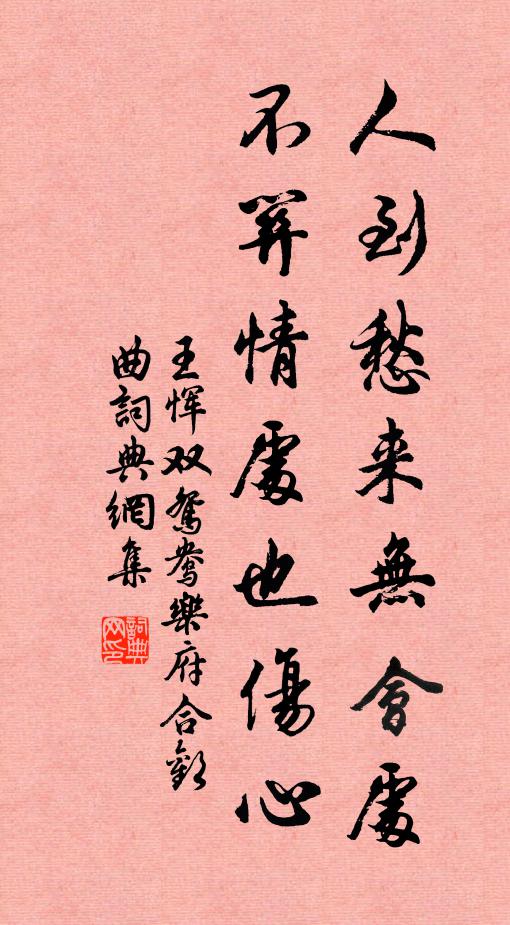 人到愁来無會處
不關情處也傷心
王惲双鴛鴦樂府合歡
曲詞典網集
詞典网印